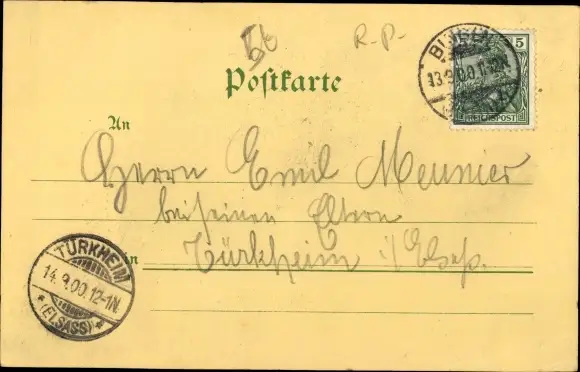 R.P.
5
13.9.00.11-12N
REICHSPOST
Postkarte
An
Herrn Emil Meunier
bei seinen Eltern
in Türkheim i/Elsass.
TÜRKHEIM
14.9.00.12-1N.
*(ELSASS)*